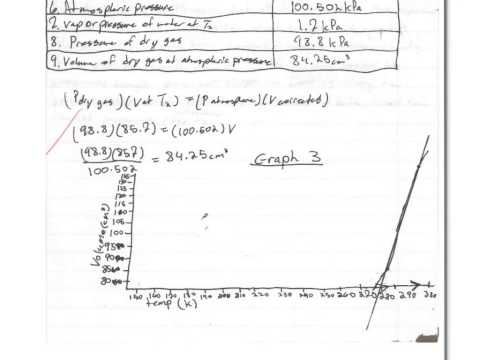 6. Atmospheric pressure 100.502 kPa
7. Vapor pressure of water at T2 1.7 kPa
8. Pressure of dry gas 98.8 kPa
9. Volume of dry gas at atmospheric pressure 84.25 cm³
(P dry gas)(V at T2) = (P atmosphere)(V corrected)
(98.8)(85.7) = (100.502) V
(98.8)(85.7) = 84.25 cm³
100.502
Graph 3
Volume (cm³)
120
115
110
105
100
95
90
85
80
190 200 210 220 230 240 250 260 270 280 290
temp (K)